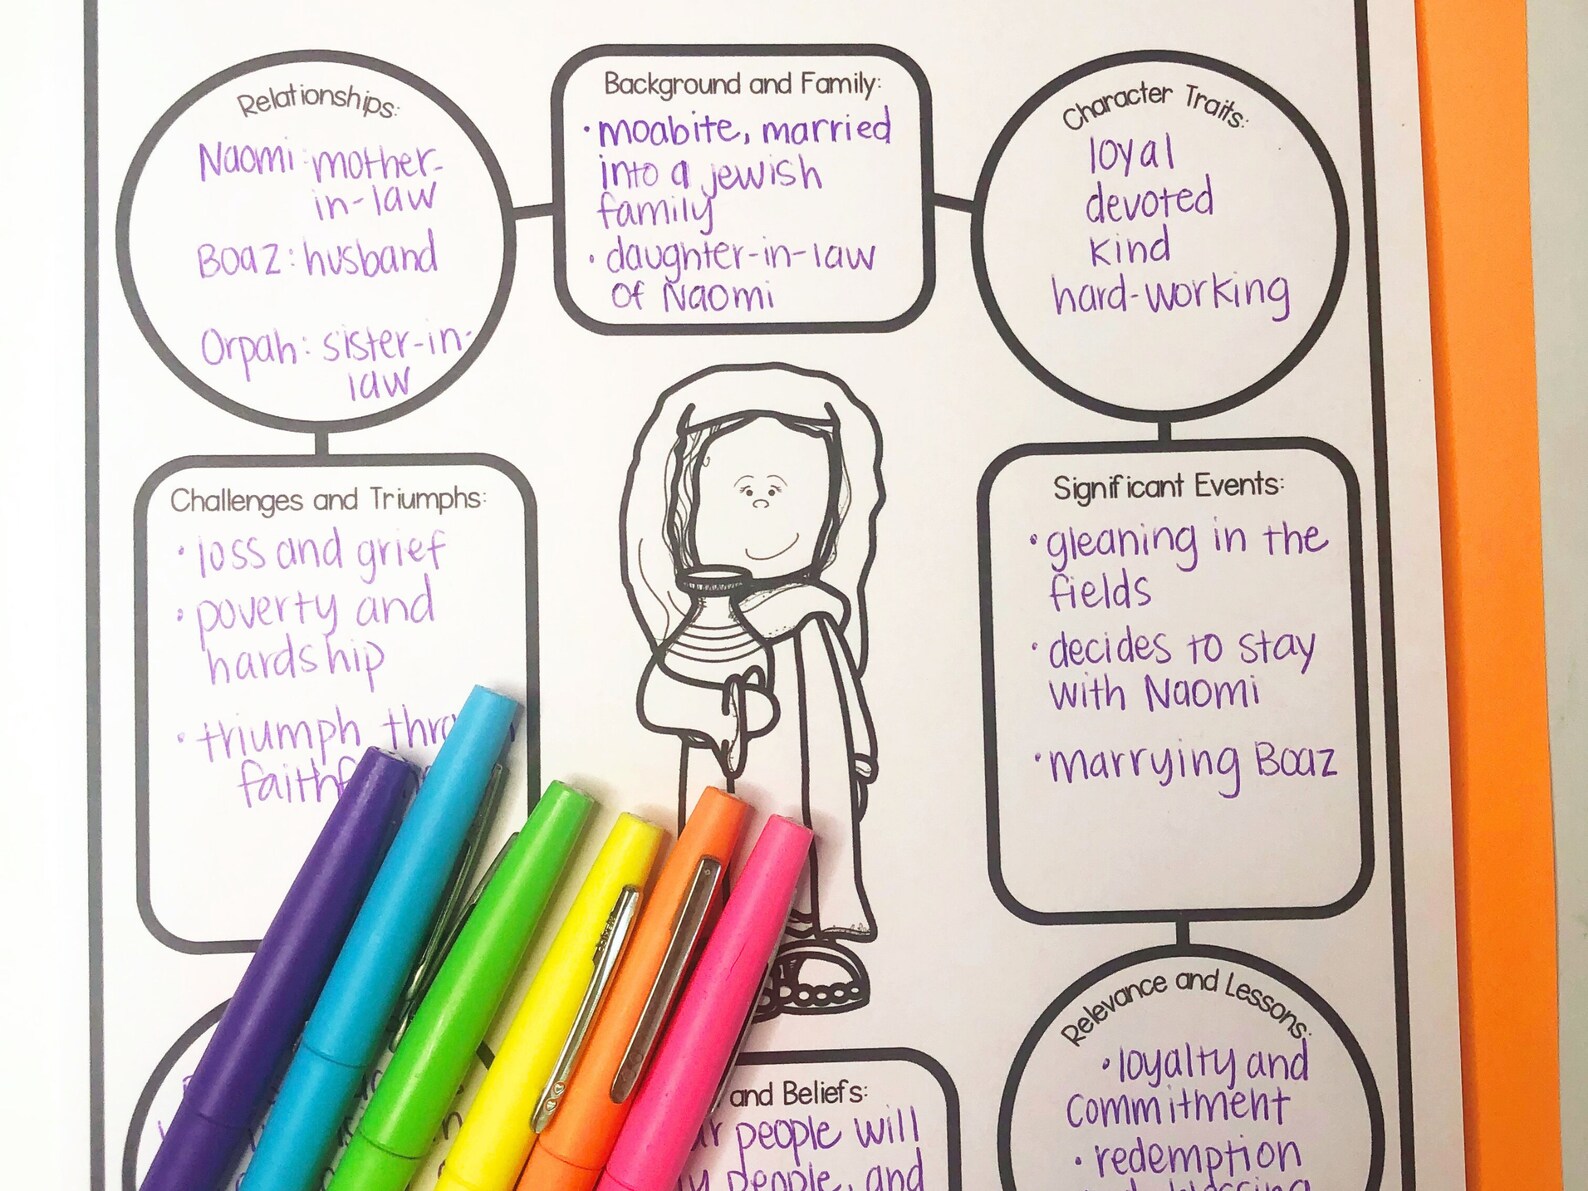 Relationships:
Naomi: mother-
in-law
Boaz: husband
Orpah: sister-in-
law
Background and Family:
• moabite, married
into a jewish
family
• daughter-in-law
of Naomi
Character Traits:
loyal
devoted
kind
hard-working
Challenges and Triumphs:
• loss and grief
• poverty and
hardship
• triumph
Significant Events:
• gleaning in the
fields
• decides to stay
with Naomi
• marrying Boaz
and Beliefs:
people will
people, and
Relevance and Lessons:
• loyalty and
commitment
• redemption